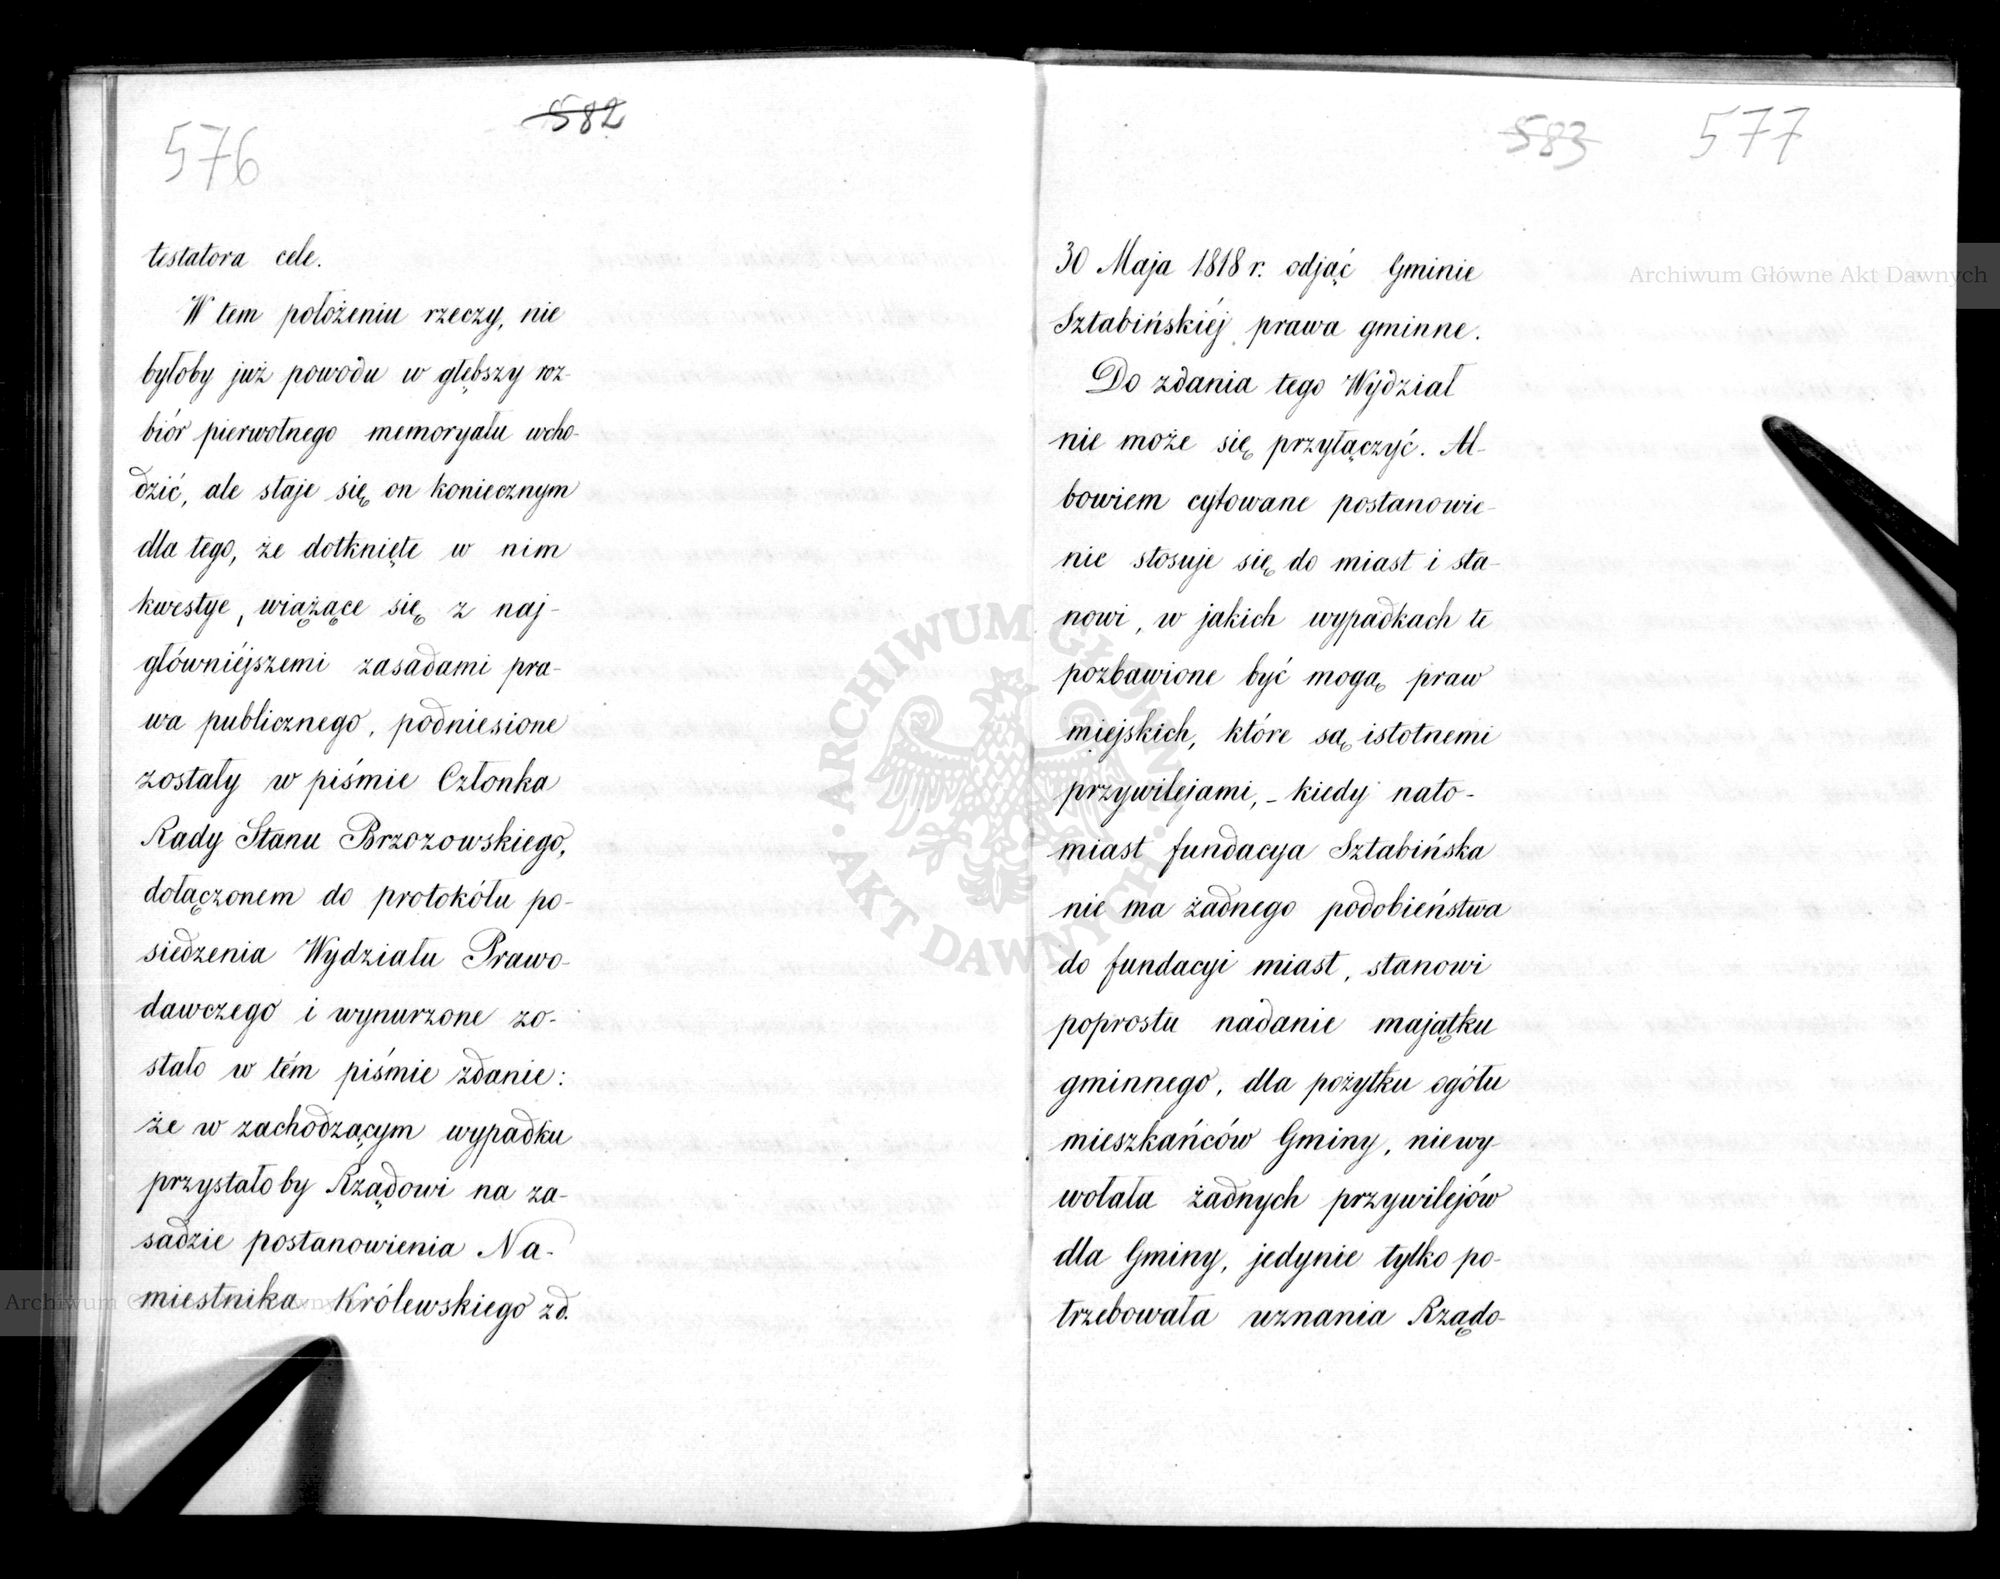 576
582
testatora cele.
W tem położeniu rzeczy, nie
byłoby już powodu w głębszy roz-
biór pierwotnego memoryału wcho-
dzić, ale staje się on koniecznym
dla tego, że dotknięte w nim
kwestye, wiążące się z naj-
główniéjszemi zasadami pra-
wa publicznego, podniesione
zostały w piśmie Członka
Rady Stanu Brzozowskiego,
dołączonem do protokółu po-
siedzenia Wydziału Prawo-
dawczego i wynurzone zo-
stało w tém piśmie zdanie:
że w zachodzącym wypadku
przystałoby Rządowi na za-
sadzie postanowienia Na-
miestnika Królewskiego zd.
583
577
30 Maja 1818 r. odjąć Gminie
Sztabińskiéj prawa gminne.
Do zdania tego Wydział
nie może się przyłączyć. Al-
bowiem cytowane postanowie-
nie stosuje się do miast i sta-
nowi, w jakich wypadkach te
pozbawione być mogą praw
miejskich, które są istotnemi
przywilejami, - kiedy nato-
miast fundacya Sztabińska
nie ma żadnego podobieństwa
do fundacyi miast, stanowi
poprostu nadanie majątku
gminnego, dla pożytku ogółu
mieszkańców Gminy, niewy-
wołała żadnych przywilejów
dla Gminy, jedynie tylko po-
trzebowała uznania Rządo-
Archiwum Główne Akt Dawnych
ARCHIWUM GŁÓWNE
AKT DAWNYCH